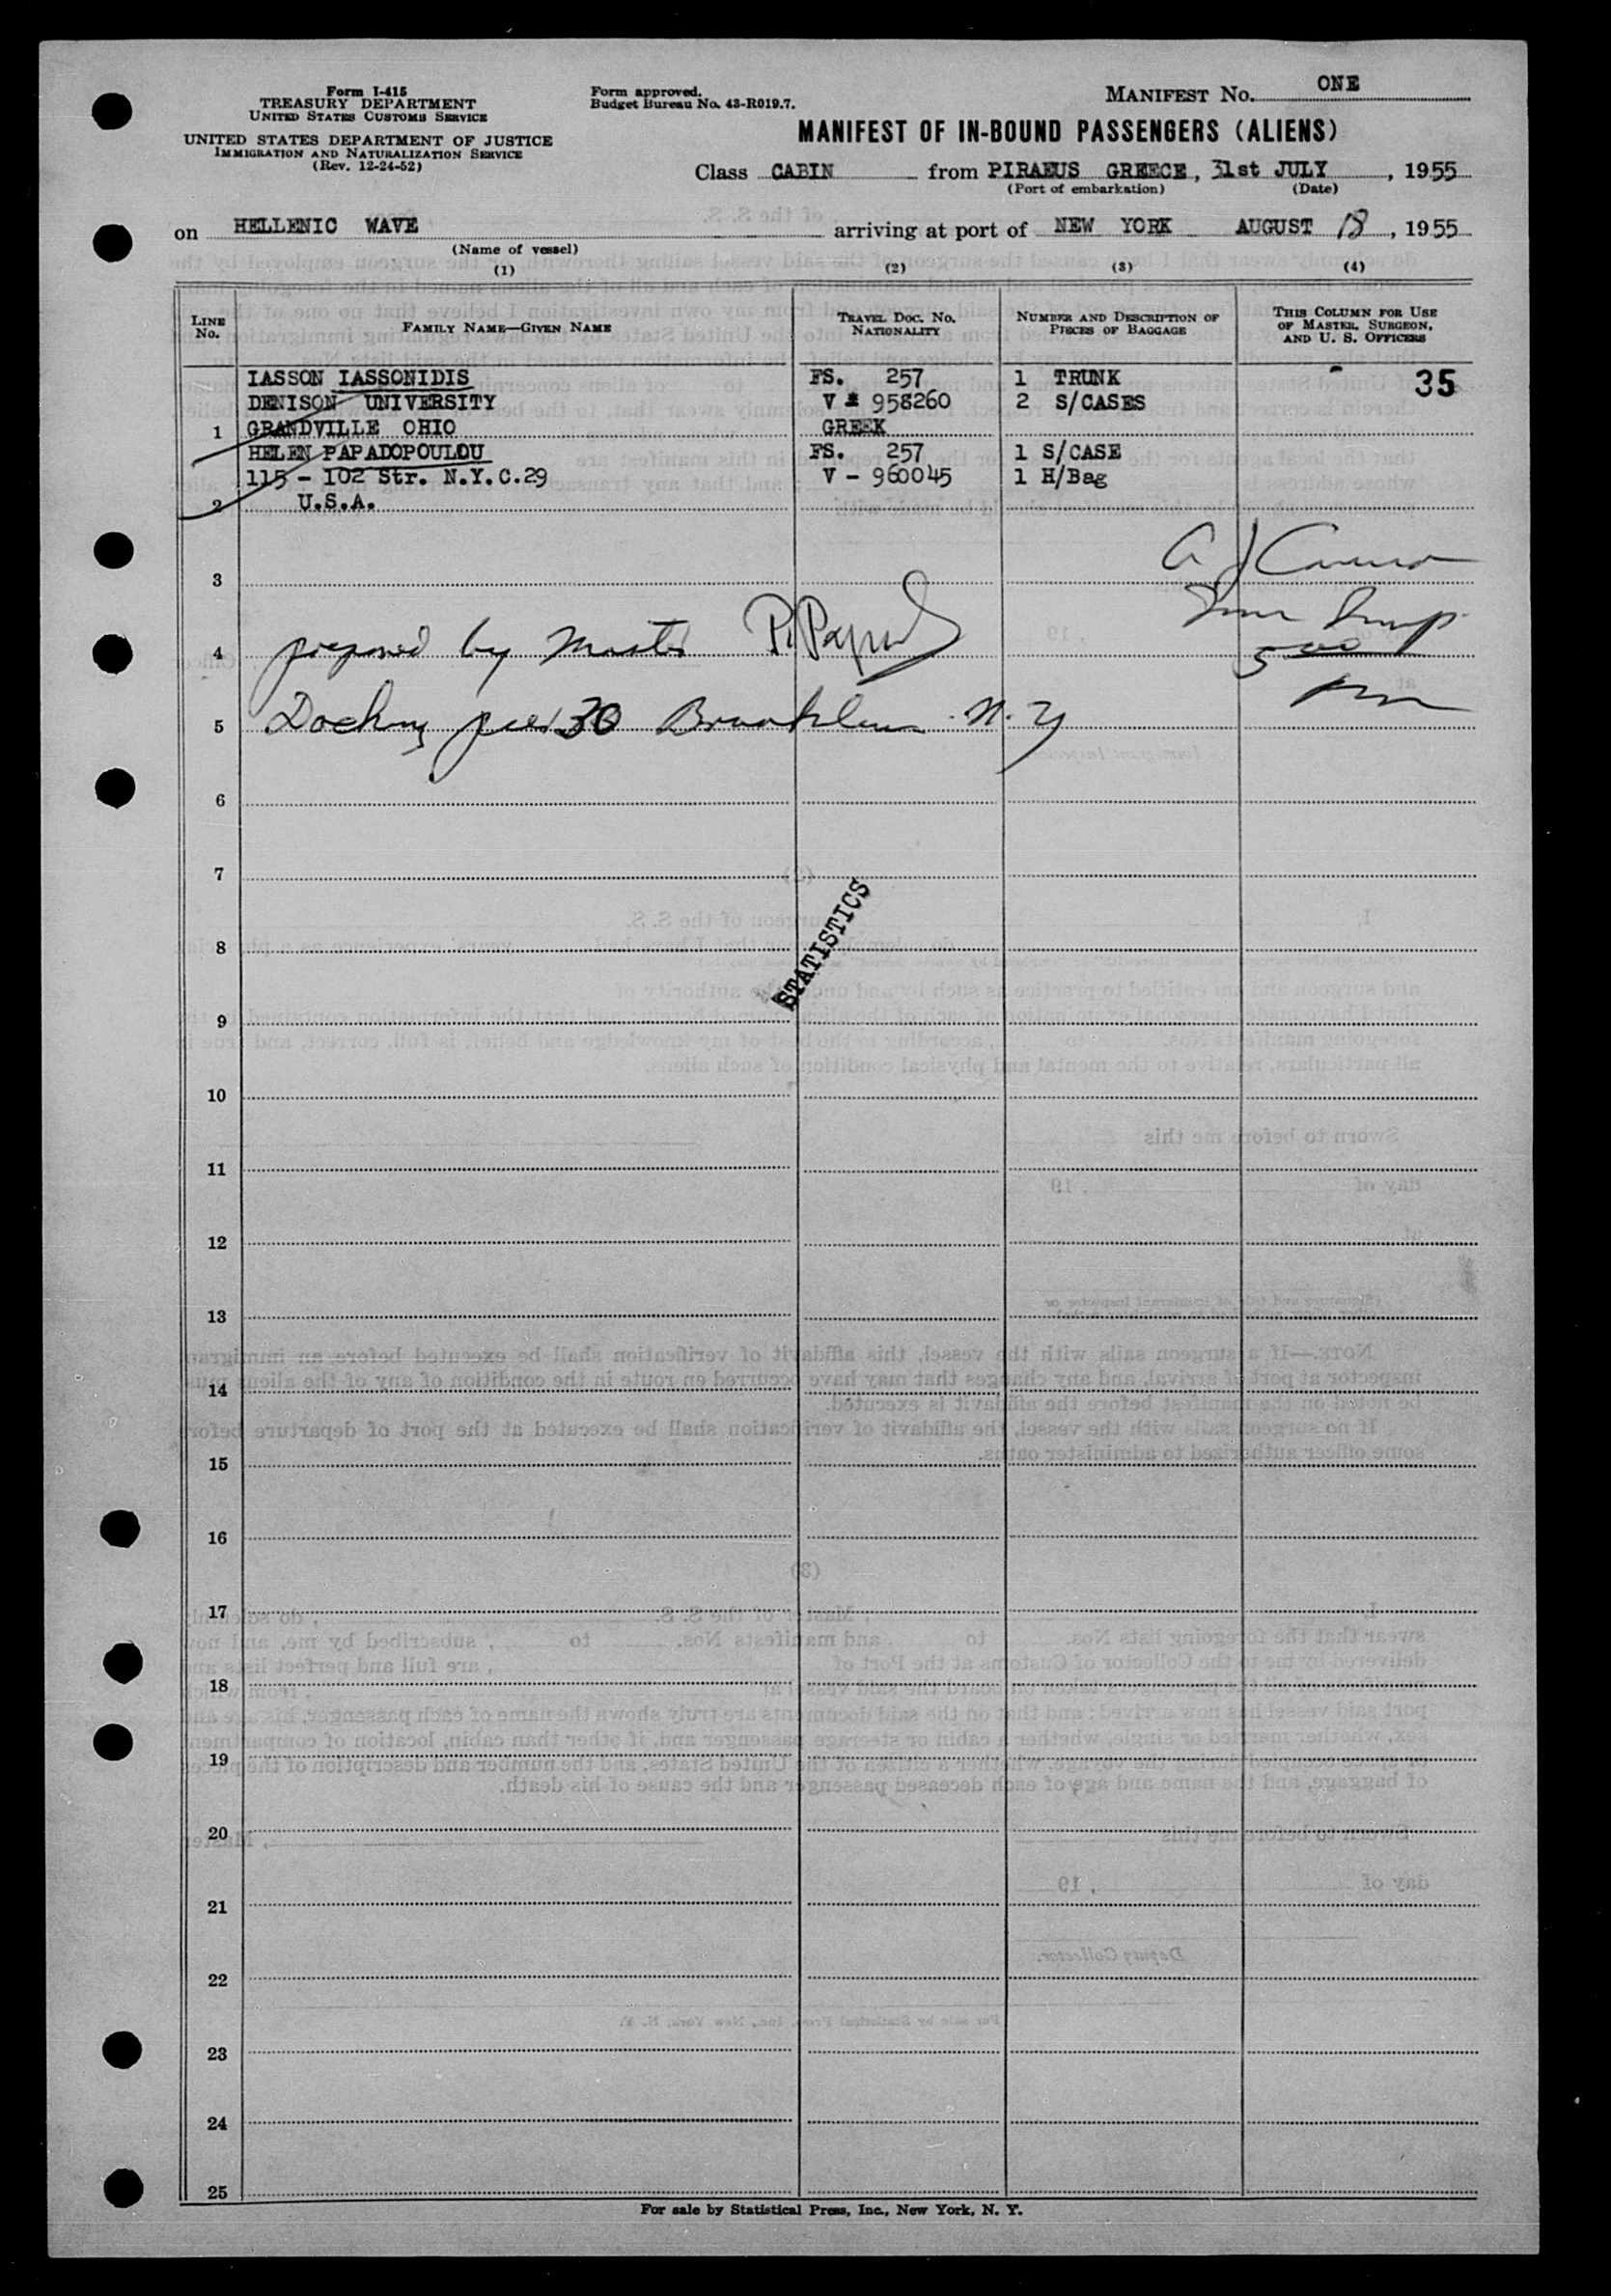 Form I-415
TREASURY DEPARTMENT
UNITED STATES CUSTOMS SERVICE
UNITED STATES DEPARTMENT OF JUSTICE
IMMIGRATION AND NATURALIZATION SERVICE
(Rev. 12-24-52)
Form approved.
Budget Bureau No. 43-R019.7.
MANIFEST NO. ONE
MANIFEST OF IN-BOUND PASSENGERS (ALIENS)
Class CABIN from PIRAEUS GREECE, 31st JULY, 1955
(Port of embarkation) (Date)
on HELLENIC WAVE arriving at port of NEW YORK AUGUST 18, 1955
(Name of vessel)
(1) (2) (3) (4)
LINE No. FAMILY NAME—GIVEN NAME TRAVEL DOC. NO. NATIONALITY NUMBER AND DESCRIPTION OF PIECES OF BAGGAGE THIS COLUMN FOR USE OF MASTER, SURGEON, AND U. S. OFFICERS
IASSON IASSONIDIS FS. 257 1 TRUNK 35
DENISON UNIVERSITY V - 958260 2 S/CASES
1 GRANDVILLE OHIO GREEK
HELEN PAPADOPOULOU FS. 257 1 S/CASE
115 - 102 Str. N.Y.C.29 V - 960045 1 H/Bag
2 U.S.A.
3
4 prepared by Master
5 Docking pier 30 Brooklyn N.Y
500
pm
6
7
STATISTICS
8
9
10
11
12
13
14
15
16
17
18
19
20
21
22
23
24
25
For sale by Statistical Press, Inc., New York, N. Y.